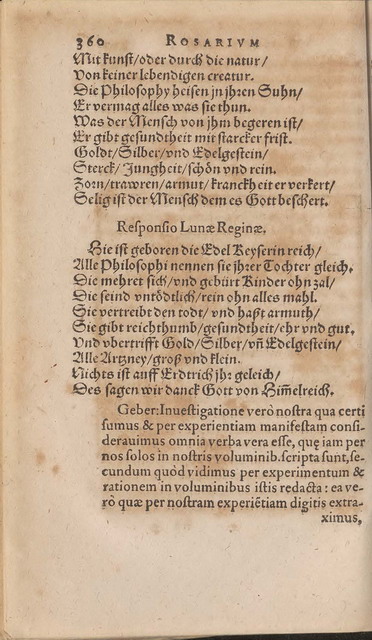 360 ROSARIVM
Mit kunst/oder durch die natur/
Von keiner lebendigen creatur.
Die Philosophy heisen jn jhren Suhn/
Er vermag alles was sie thun.
Was der Mensch von jhm begeren ist/
Er gibt gesundtheit mit starcker frist.
Goldt/Silber/vnd Edelgestein/
Sterck/Jungheit/schön vnd rein.
Zorn/trawren/armut/kranckheit er verkert/
Selig ist der Mensch dem es Gott beschert.
Responsio Lunæ Reginæ.
Hie ist geboren die Edel Keyserin reich/
Alle Philosophi nennen sie jhrer Tochter gleich.
Die mehret sich/vnd gebürt Kinder ohn zal/
Die seind vntödtlich/rein ohn alles mahl.
Sie vertreibt den todt/vnd haßt armuth/
Sie gibt reichthumb/gesundtheit/ehr vnd gut.
Vnd vbertrifft Gold/Silber/vñ Edelgestein/
Alle Artzney/groß vnd klein.
Nichts ist auff Erdtrich jhr geleich/
Des sagen wir danck Gott von Him̃elreich.
Geber: Inuestigatione verò nostra qua certi
sumus & per experientiam manifestam consi-
derauimus omnia verba vera esse, quę iam per
nos solos in nostris voluminib. scripta sunt, se-
cundum quòd vidimus per experimentum &
rationem in voluminibus istis redacta: ea ve-
rò quæ per nostram experiẽtiam digitis extra-
ximus,